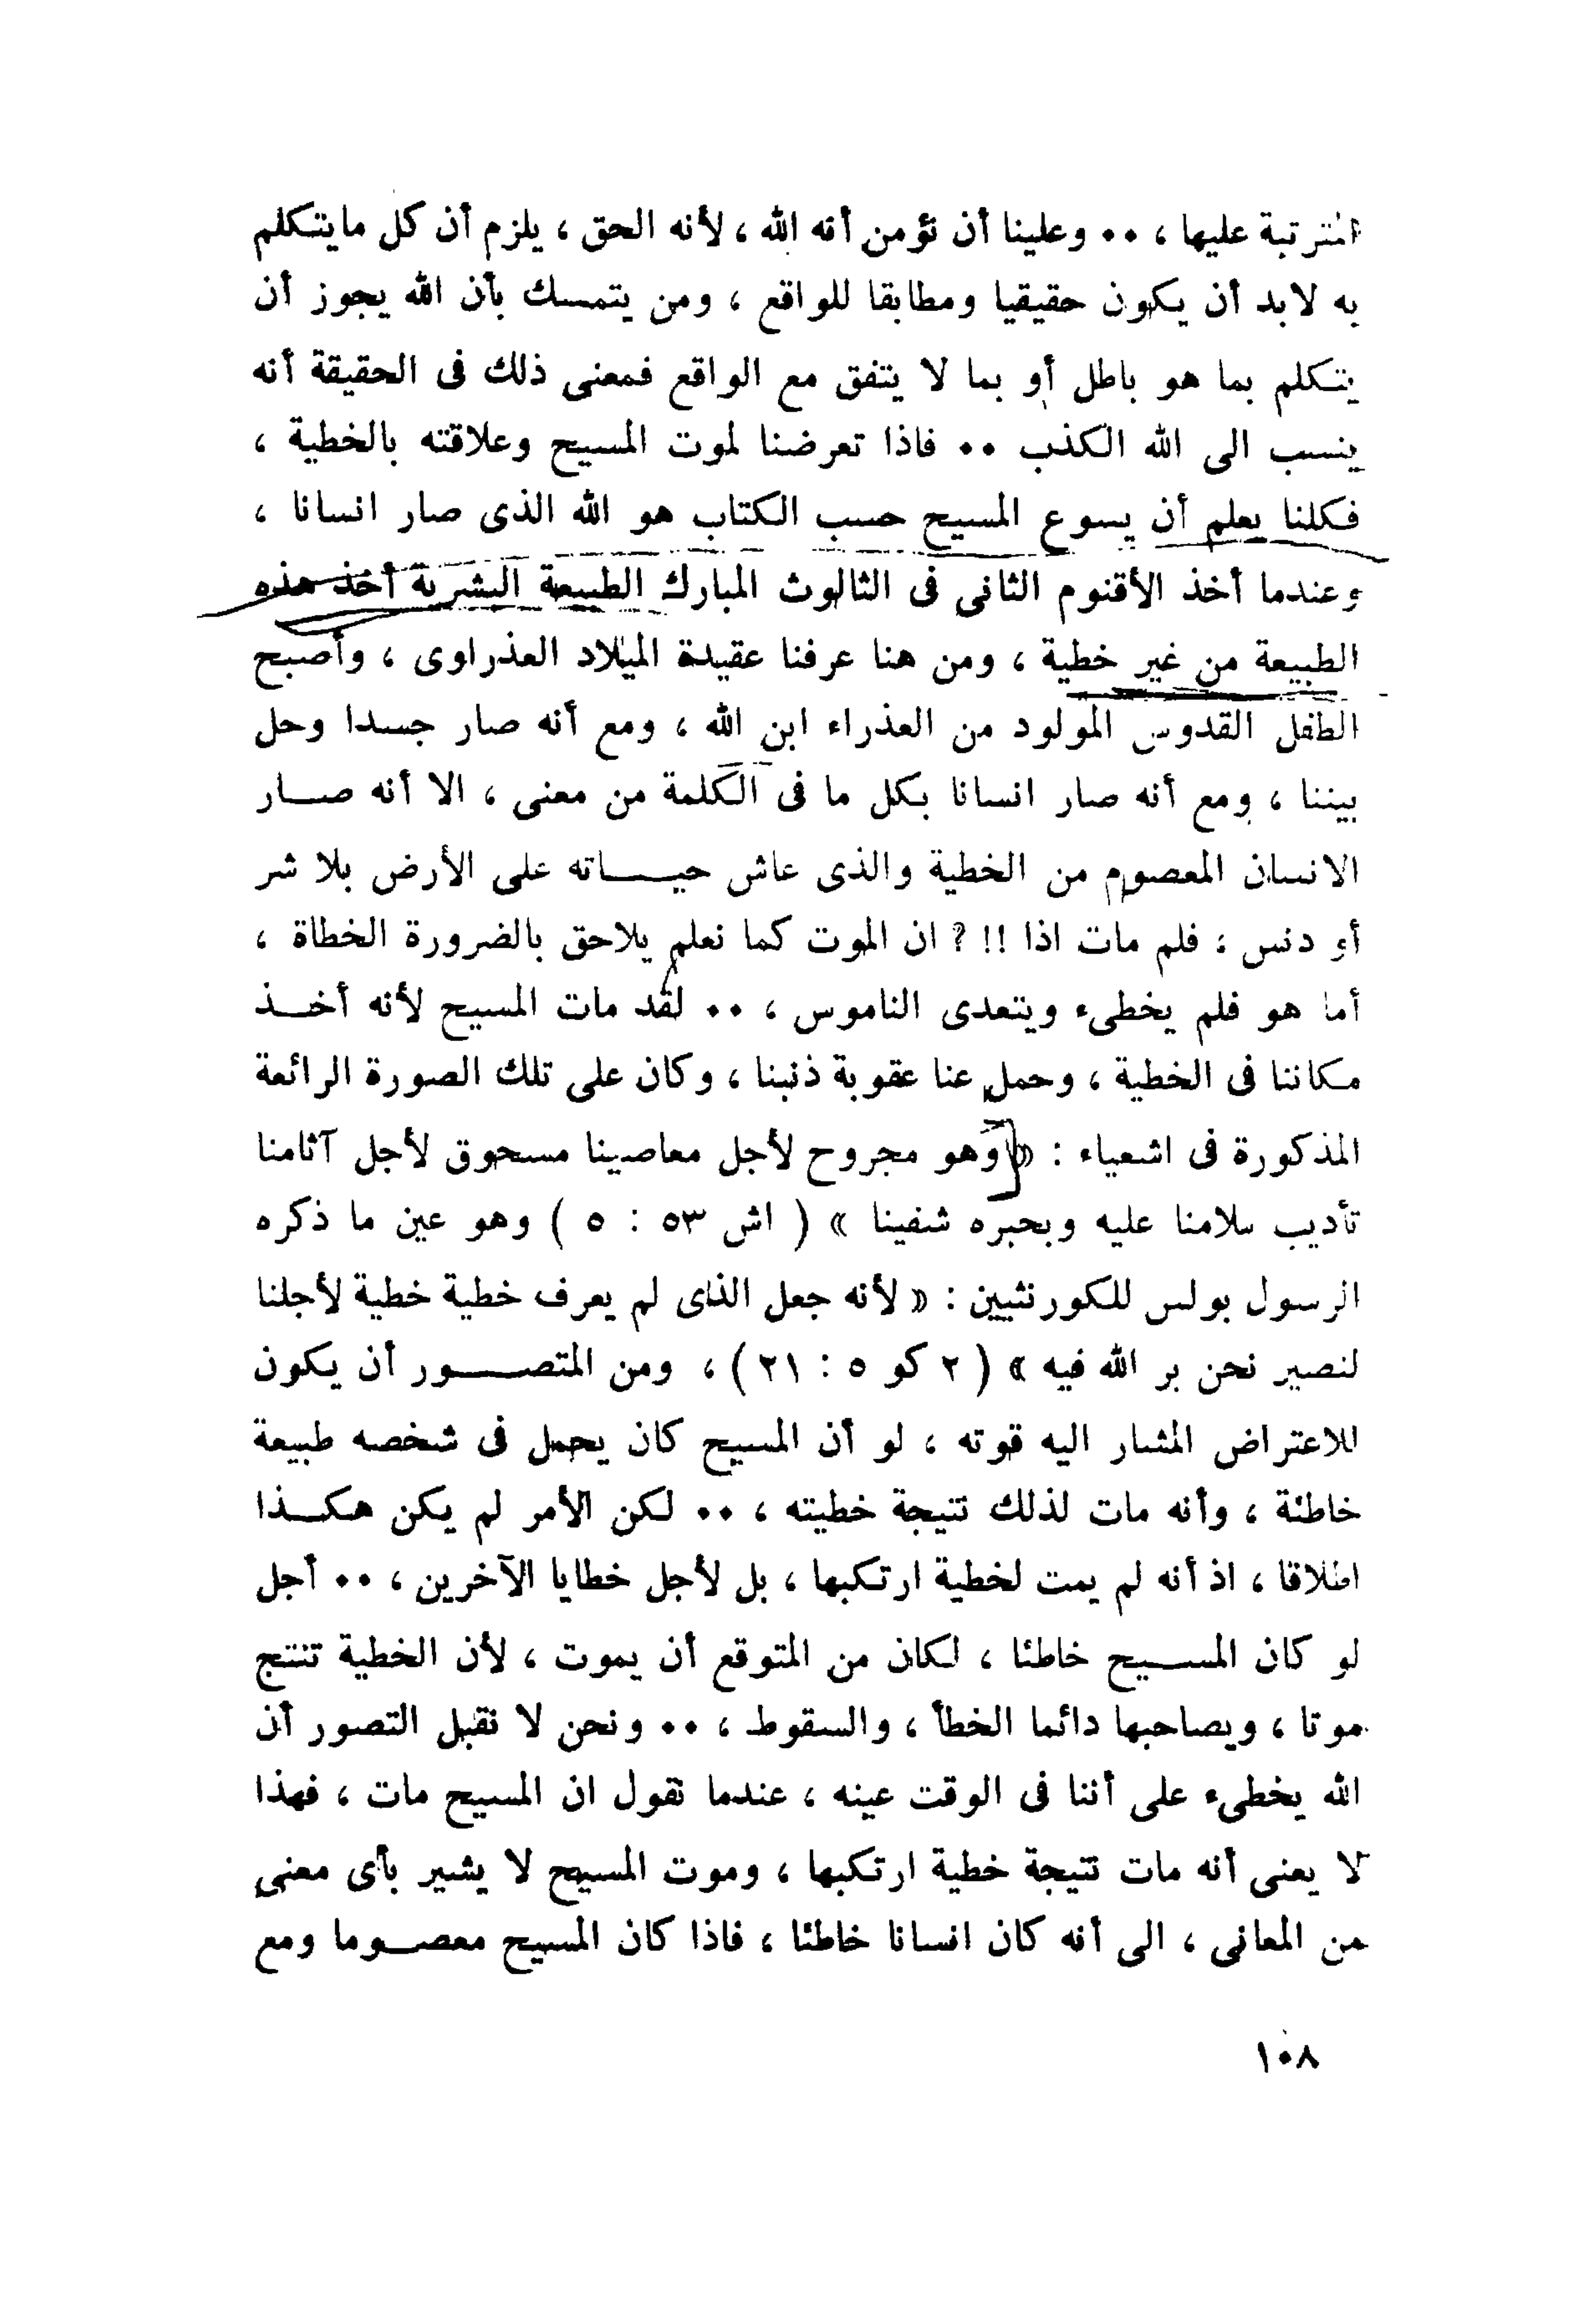 المترتبة عليها ، ٠٠ وعلينا أن نؤمن أنه الله ، لأنه الحق ، يلزم أن كل مايتكلم
به لابد أن يكون حقيقيا ومطابقا للواقع ، ومن يتمسك بأن الله يجوز أن
يتكلم بما هو باطل أو بما لا يتفق مع الواقع فمعنى ذلك فى الحقيقة أنه
ينسب الى الله الكذب ٠٠ فاذا تعرضنا لموت المسيح وعلاقته بالخطية ،
فكلنا يعلم أن يسوع المسيح حسب الكتاب هو الله الذى صار انسانا ،
وعندما أخذ الأقنوم الثانى فى الثالوث المبارك الطبيعة البشرية أخذ هذه
الطبيعة من غير خطية ، ومن هنا عرفنا عقيدة الميلاد العذراوى ، وأصبح
الطفل القدوس المولود من العذراء ابن الله ، ومع أنه صار جسدا وحل
بيننا ، ومع أنه صار انسانا بكل ما فى الكلمة من معنى ، الا أنه صــار
الانسان المعصوم من الخطية والذى عاش حيــــاته على الأرض بلا شر
أو دنس ، فلم مات اذا !! ? ان الموت كما نعلم يلاحق بالضرورة الخطاة ،
أما هو فلم يخطىء ويتعدى الناموس ، ٠٠ لقد مات المسيح لأنه أخــذ
مكاننا فى الخطية ، وحمل عنا عقوبة ذنبنا ، وكان على تلك الصورة الرائعة
المذكورة فى اشعياء : « وهو مجروح لأجل معاصينا مسحوق لأجل آثامنا
تأديب سلامنا عليه وبحبره شفينا » ( اش ٥٣ : ٥ ) وهو عين ما ذكره
الرسول بولس للكورنثيين : « لأنه جعل الذى لم يعرف خطية خطية لأجلنا
لنصير نحن بر الله فيه » ( ٢ كو ٥ : ٢١ ) ، ومن المتصــــور أن يكون
للاعتراض المشار اليه قوته ، لو أن المسيح كان يحمل فى شخصه طبيعة
خاطئة ، وأنه مات لذلك نتيجة خطيته ، ٠٠ لكن الأمر لم يكن هكــذا
اطلاقا ، اذ أنه لم يمت لخطية ارتكبها ، بل لأجل خطايا الآخرين ، ٠٠ أجل
لو كان المســيح خاطئا ، لكان من المتوقع أن يموت ، لأن الخطية تنتج
موتا ، ويصاحبها دائما الخطأ ، والسقوط ، ٠٠ ونحن لا نقبل التصور أن
الله يخطىء على أننا فى الوقت عينه ، عندما نقول ان المسيح مات ، فهذا
لا يعنى أنه مات نتيجة خطية ارتكبها ، وموت المسيح لا يشير بأى معنى
من المعانى ، الى أنه كان انسانا خاطئا ، فاذا كان المسيح معصــوما ومع
١٠٨